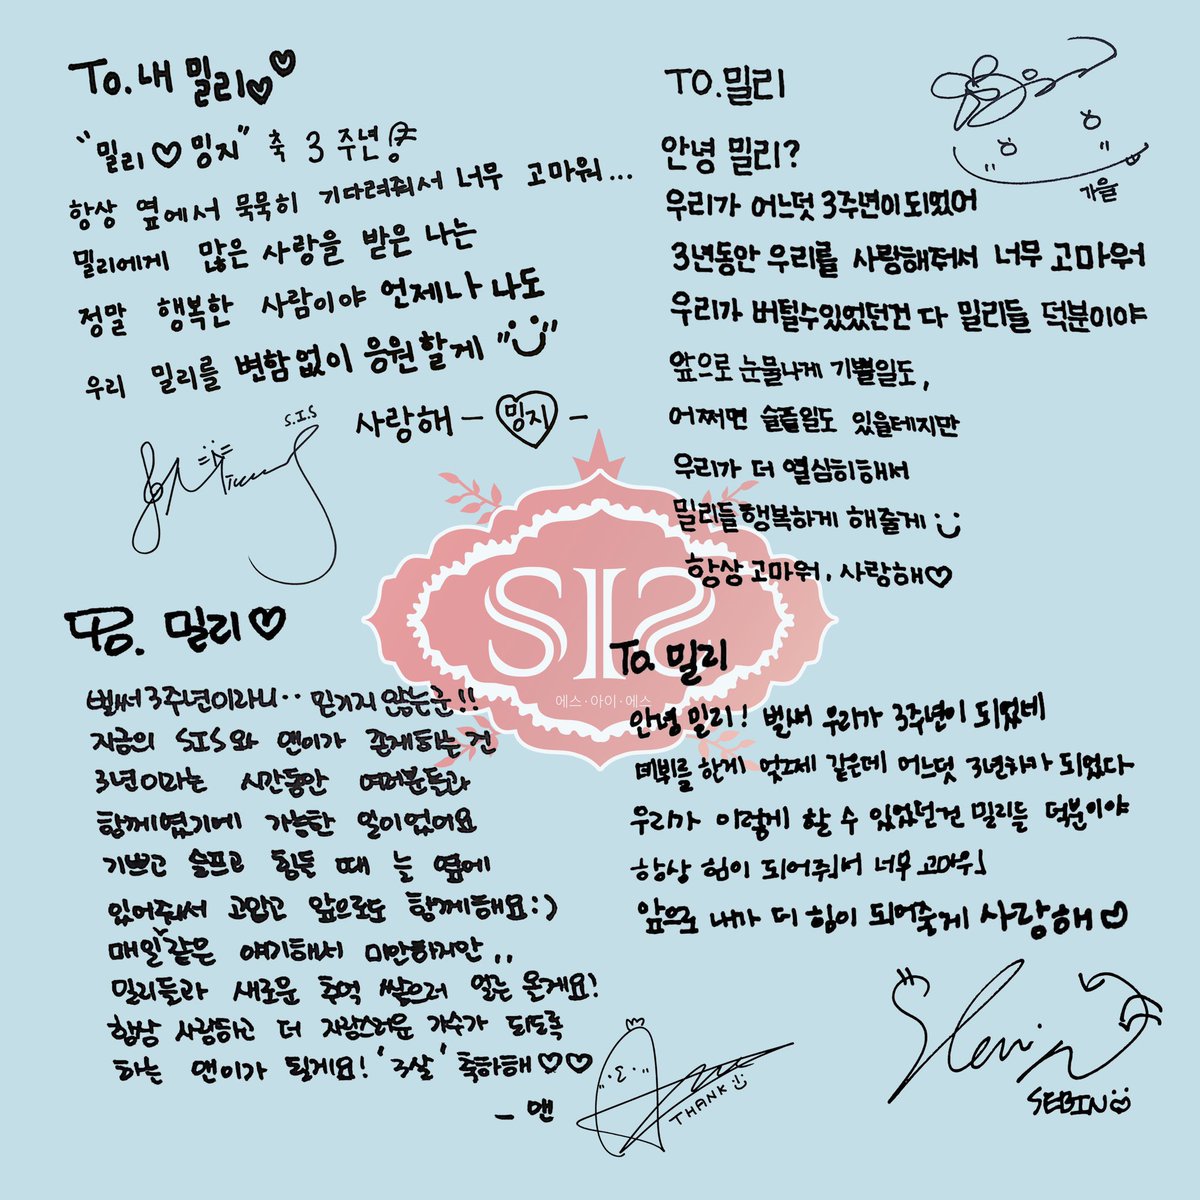 To. 내 밀리♡♡
"밀리♡밍지" 축 3주년
항상 옆에서 묵묵히 기다려줘서 너무 고마워...
밀리에게 많은 사랑을 받은 나는
정말 행복한 사람이야 언제나 나도
우리 밀리를 변함없이 응원할게
사랑해 - 밍지 -
S.I.S
TO. 밀리
안녕 밀리?
우리가 어느덧 3주년이 되었어
3년동안 우리를 사랑해줘서 너무 고마워
우리가 버틸수있었던건 다 밀리들 덕분이야
앞으로 눈물나게 기쁠일도,
어쩌면 슬플일도 있을테지만
우리가 더 열심히해서
밀리들 행복하게 해줄게
항상 고마워, 사랑해♡
가을
SIS
에스·아이·에스
To. 밀리♡
벌써 3주년이라니.. 믿기지 않는군!!
지금의 SIS와 앤이가 존재하는건
3년이라는 시간동안 여러분들과
함께였기에 가능한 일이었어요
기쁘고 슬프고 힘든 때 늘 옆에
있어줘서 고맙고 앞으로도 함께해요:)
매일 같은 얘기해서 미안하지만,,
밀리들과 새로운 추억 쌓으러 얼른 올게요!
항상 사랑하고 더 자랑스러운 가수가 되도록
하는 앤이가 될게요! '3살' 축하해♡♡
- 앤
THANK
To. 밀리
안녕 밀리! 벌써 우리가 3주년이 되었네
데뷔를 한게 엊그제 같은데 어느덧 3년차가 되었다
우리가 이렇게 할 수 있었던건 밀리들 덕분이야
항상 힘이 되어줘서 너무 고마워
앞으로 내가 더 힘이 되어줄게 사랑해♡
SEBIN